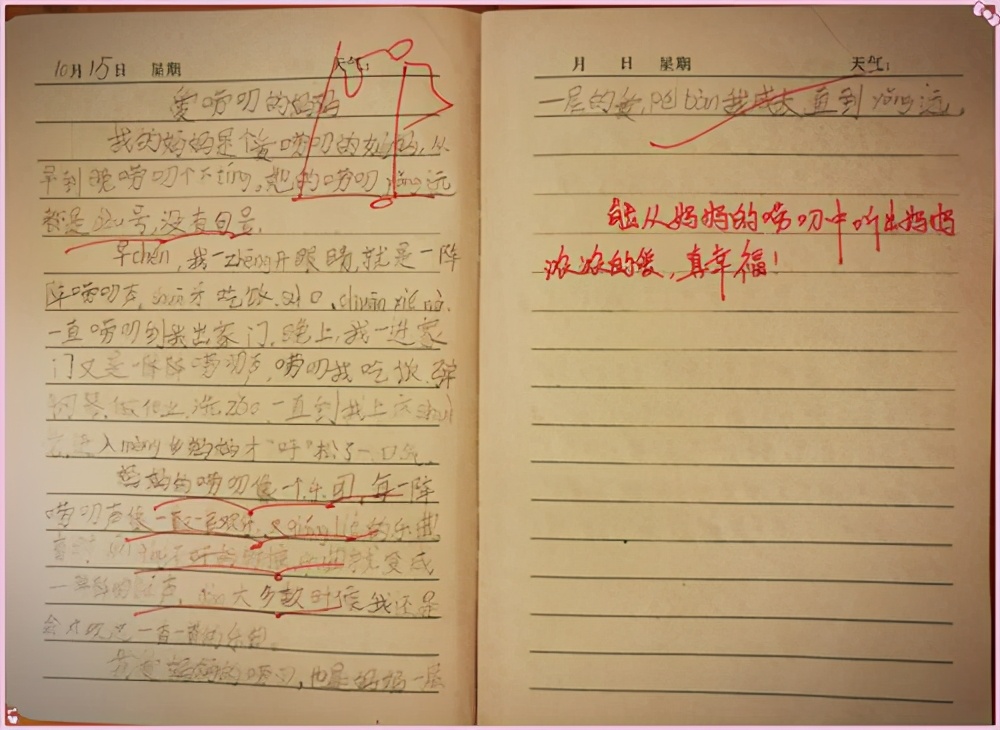 10月15日 星期 天气:
爱唠叨的妈妈
我的妈妈是个爱唠叨的妈妈,从
早到晚唠叨个不tíng。她的唠叨yǒng远
都是 号,没有句号。
早chén,我一zhēng开眼睛,就是一阵
阵唠叨声,shuā牙吃饭、 chuān xié
一直唠叨到我出家门。晚上,我一进家
门又是一阵阵唠叨声,唠叨我吃饭、弹
钢琴、做作业、洗zǎo一直到我上床shuì
入mèng乡妈妈才“吁”松了一口气。
妈妈的唠叨像一个乐团,每一阵
唠叨声像一首 的乐曲。
就变成
一阵阵的 声,大多数时候我还是
会 一首一首的乐曲。
妈妈的唠叨,也是妈妈一层
月 日 星期 天气:
一层的爱,péi bàn我成长,直到yǒng远。
能从妈妈的唠叨中听出妈妈
浓浓的爱,真幸福!